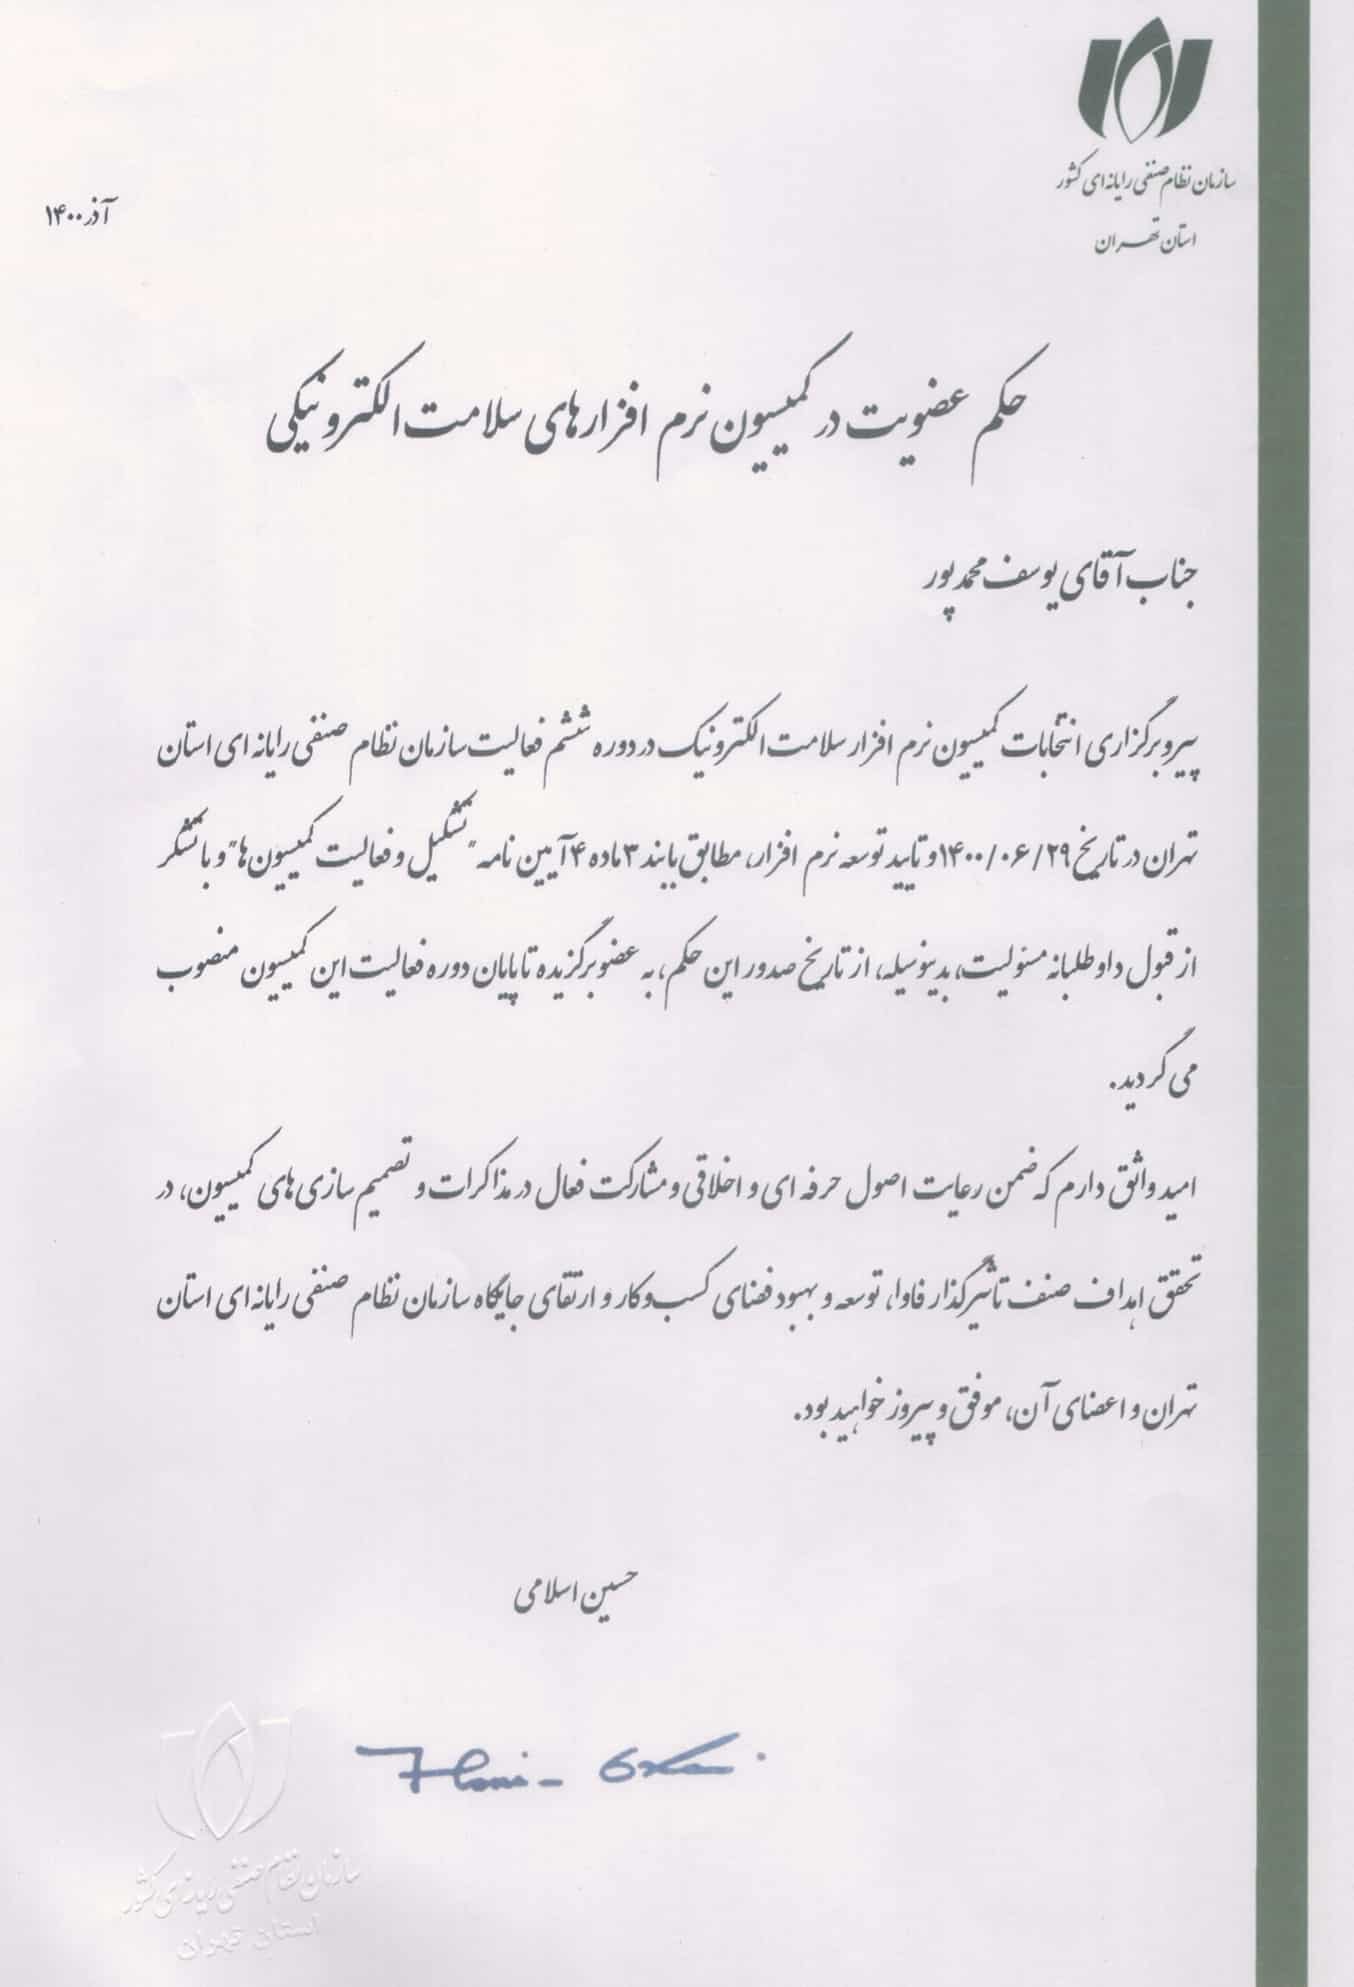 سازمان نظام صنفی رایانه ای کشور
استان تهران
آذر ۱۴۰۰
حکم عضویت در کمیسیون نرم افزارهای سلامت الکترونیکی
جناب آقای یوسف محمدپور
پیرو برگزاری انتخابات کمیسیون نرم افزار سلامت الکترونیک در دوره ششم فعالیت سازمان نظام صنفی رایانه ای استان
تهران در تاریخ ۱۴۰۰/۰۶/۲۹ و تایید توسعه نرم افزار، مطابق با بند ۳ ماده ۴ آیین نامه "تشکیل و فعالیت کمیسیون ها" و با تشکر
از قبول داوطلبانه مسئولیت، بدینوسیله، از تاریخ صدور این حکم، به عضو برگزیده تا پایان دوره فعالیت این کمیسیون منصوب
می گردید.
امید واثق دارم که ضمن رعایت اصول حرفه ای و اخلاقی و مشارکت فعال در مذاکرات و تصمیم سازی های کمیسیون، در
تحقق اهداف صنف تأثیرگذار فاوا، توسعه و بهبود فضای کسب و کار و ارتقای جایگاه سازمان نظام صنفی رایانه ای استان
تهران و اعضای آن، موفق و پیروز خواهید بود.
حسین اسلامی
سازمان نظام صنفی رایانه ای کشور
استان تهران